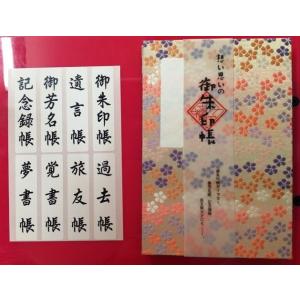 御朱印帳
遺言帳
御芳名帳
記念録帳
過去帳
旅友帳
覚書帳
夢書帳
想い思いの
御朱印帳